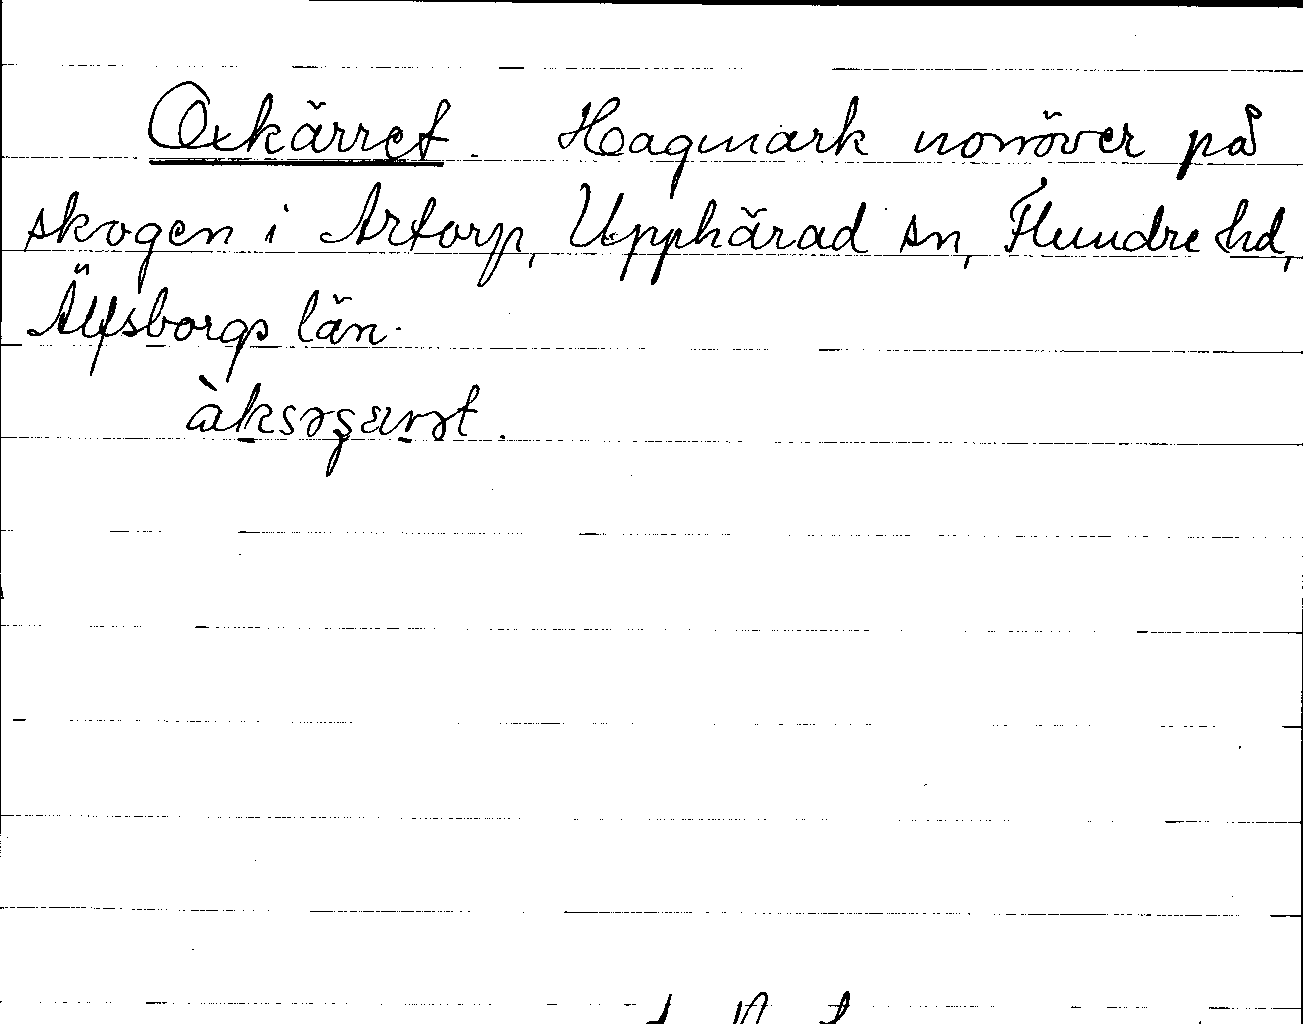 Oxkärret. Hagmark norröver på
skogen i Artorp, Upphärad sn, Flundre hd,
Älfsborgs län.